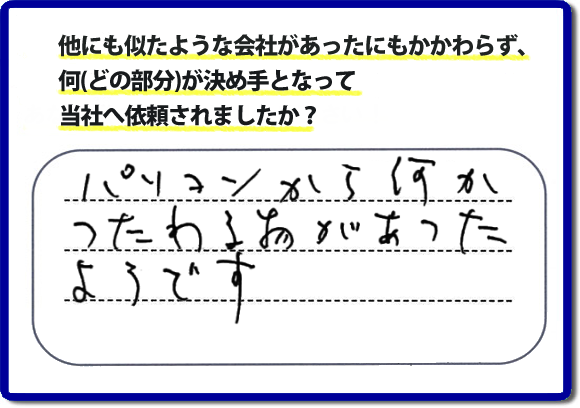 他にも似たような会社があったにもかかわらず、
何(どの部分)が決め手となって
当社へ依頼されましたか？
パソコンから何か
つたわる物があった
ようです